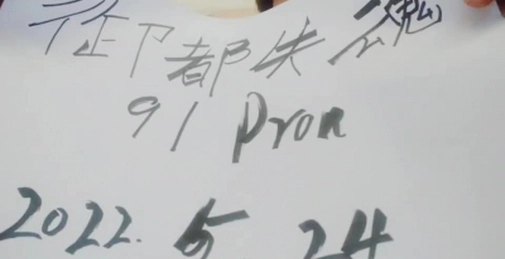 御都失魂
91 Pron
2022. 5 24